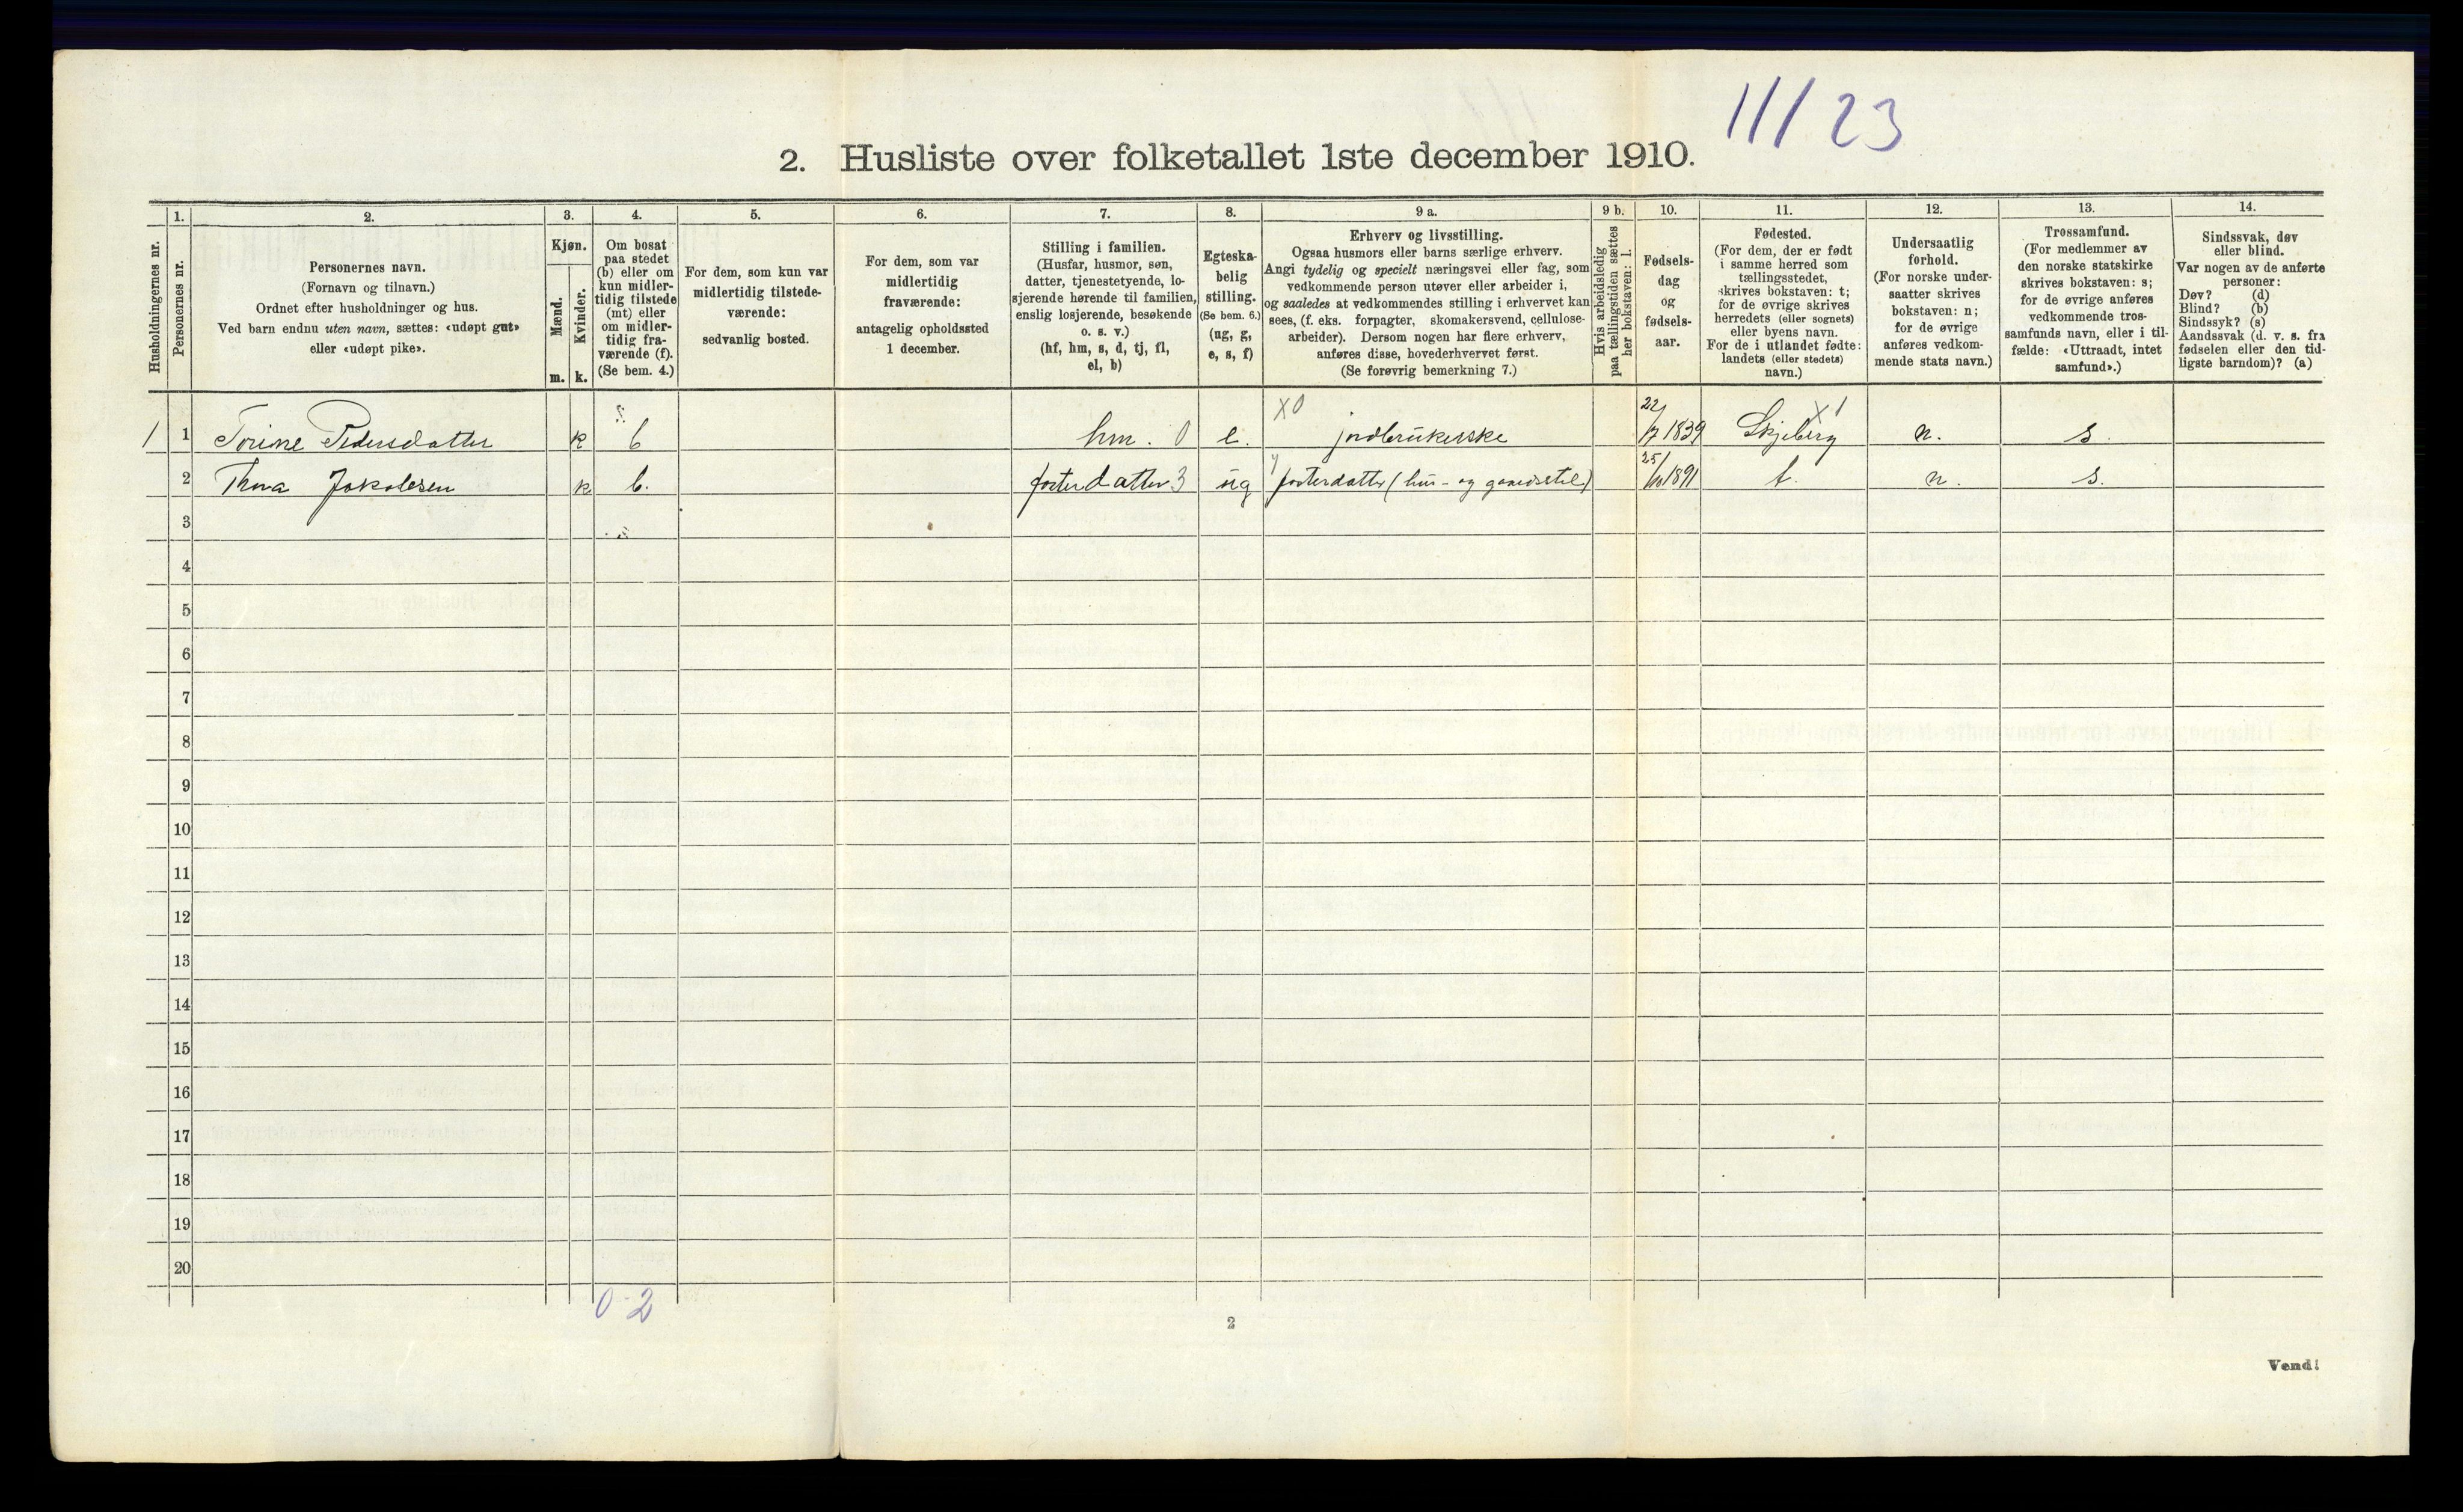 11/23
2. Husliste over folketallet 1ste december 1910.
Husholdningernes nr.
1.
Personernes nr.
2.
Personernes navn.
(Fornavn og tilnavn.)
Ordnet efter husholdninger og hus.
Ved barn endnu uten navn, sættes: «udøpt gut»
eller «udøpt pike».
3.
Kjøn.
Mænd.
Kvinder.
m. k.
4.
Om bosat
paa stedet
(b) eller om
kun midler-
tidig tilstede
(mt) eller
om midler-
tidig fra-
værende (f).
(Se bem. 4.)
5.
For dem, som kun var
midlertidig tilstede-
værende:
sedvanlig bosted.
6.
For dem, som var
midlertidig
fraværende:
antagelig opholdssted
1 december.
7.
Stilling i familien.
(Husfar, husmor, søn,
datter, tjenestetyende, lo-
sjerende hørende til familien,
enslig losjerende, besøkende
o. s. v.)
(hf, hm, s, d, tj, fl,
el, b)
8.
Egteska-
belig
stilling.
(Se bem. 6.)
(ug, g,
e, s, f)
9 a.
Erhverv og livsstilling.
Ogsaa husmors eller barns særlige erhverv.
Angi tydelig og specielt næringsvei eller fag, som
vedkommende person utøver eller arbeider i,
og saaledes at vedkommendes stilling i erhvervet kan
sees, (f. eks. forpagter, skomakersvend, cellulose-
arbeider). Dersom nogen har flere erhverv,
anføres disse, hovederhvervet først.
(Se forøvrig bemerkning 7.)
9 b.
Hvis arbeidsledig
paa tællingstiden sættes
her bokstaven: l.
10.
Fødsels-
dag
og
fødsels-
aar.
11.
Fødested.
(For dem, der er født
i samme herred som
tællingsstedet,
skrives bokstaven: t;
for de øvrige skrives
herredets (eller sognets)
eller byens navn.
For de i utlandet fødte:
landets (eller stedets)
navn.)
12.
Undersaatlig
forhold.
(For norske under-
saatter skrives
bokstaven: n;
for de øvrige
anføres vedkom-
mende stats navn.)
13.
Trossamfund.
(For medlemmer av
den norske statskirke
skrives bokstaven: s;
for de øvrige anføres
vedkommende tros-
samfunds navn, eller i til-
fælde: «Uttraadt, intet
samfund».)
14.
Sindssvak, døv
eller blind.
Var nogen av de anførte
personer:
Døv? (d)
Blind? (b)
Sindssyk? (s)
Aandssvak (d. v. s. fra
fødselen eller den tid-
ligste barndom)? (a)
1 1 Torine Pedersdatter k b hm. 0 e. X0 jordbrukerske 22/7 1839 Skjeberg X1 n. s.
2 Thora Jakobsen k b. fosterdatter 3 ug fosterdatter (hus- og gaardsstel) 25/10 1891 t. n. s.
3
4
5
6
7
8
9
10
11
12
13
14
15
16
17
18
19
20
0-2
2
Vend!